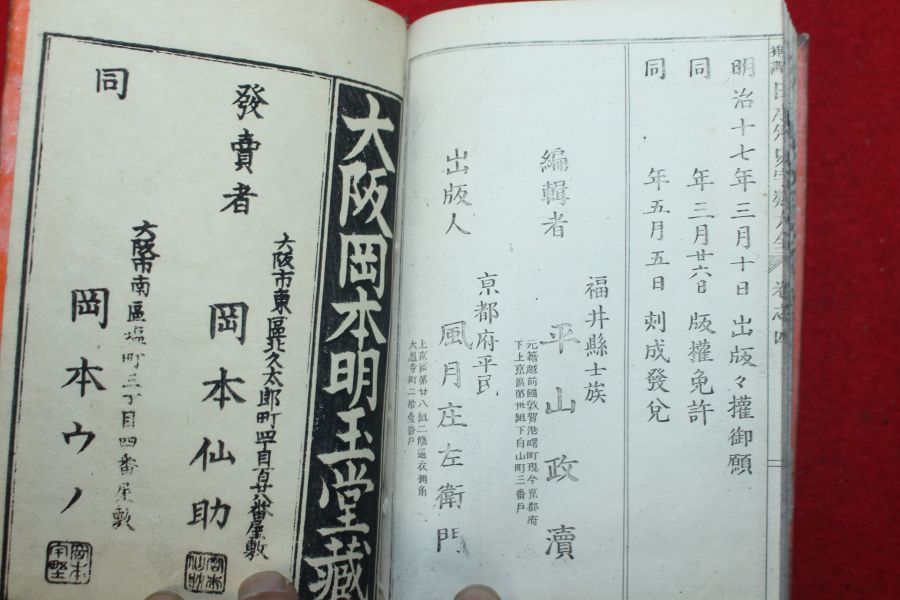 明治十七年三月十日出版々權御願
同年三月廿六日版權免許
同年五月五日刻成發兌
福井縣士族
編輯者
平山政瀆
元籍越前國敦賀港曙町現今京都府
下上京區第卅組下白山町三番戸
京都府平民
出版人
風月庄左衛門
上京區第廿八組二條通衣棚角
大恩寺町二拾壹番戸
大阪岡本明玉堂藏
大阪市東區北久太郎町四丁目百廿八番屋敷
發賣者
岡本仙助
大阪市南區塩町三丁目四番屋敷
同
岡本ウノ